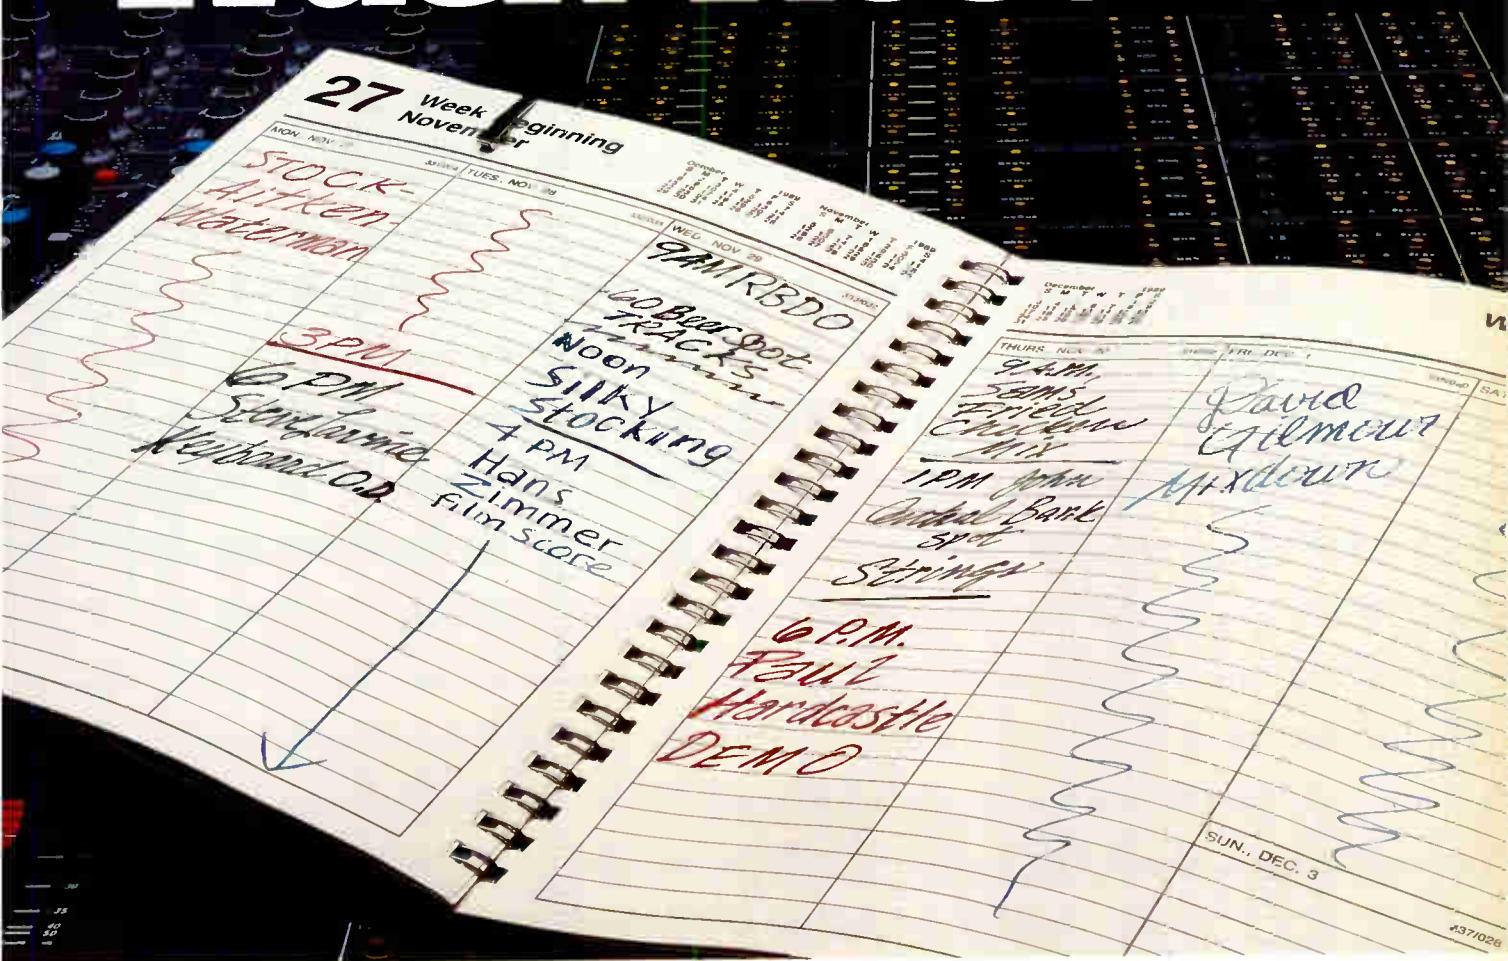 27 Week Beginning
November
MON. NOV. 27
STOCK-
Aitken-
Waterman
TUES. NOV. 28
3PM
6 PM
Steve Levine
Keyboard O.D.
October 1989
November 1989
WED. NOV. 29
9AM RBDO
60 Beer Spot
TRACKS
Noon
Silky
Stocking
4 PM
Hans
Zimmer
film score
December 1989
THURS. NOV. 30
9 A.M.
Sam's
Fried
Chicken
Mix
1PM John
Central Bank
spot
Strings
6 P.M.
Paul
Hardcastle
DEMO
FRI. DEC. 1
David
Gilmour
Mixdown
SAT
SUN., DEC. 3
30
35
40
50